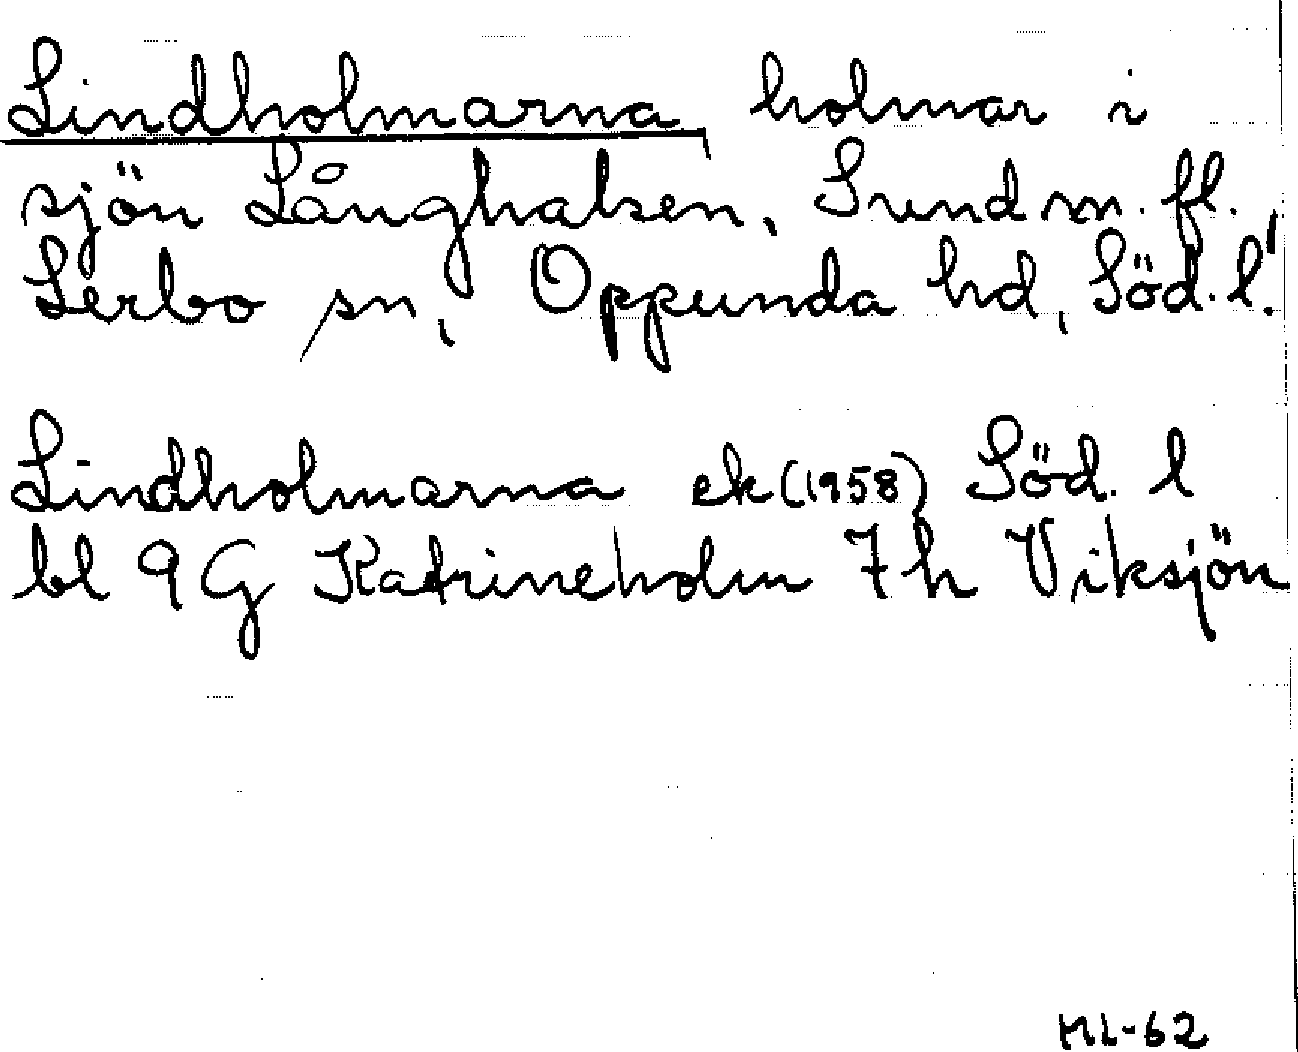 Lindholmarna, holmar i
sjön Långhalsen, Sund m. fl.
Lerbo sn, Oppunda hd, Söd. l.
Lindholmarna ek (1958) Söd. l
bl 9G Katrineholm 7h Viksjön
ML-62